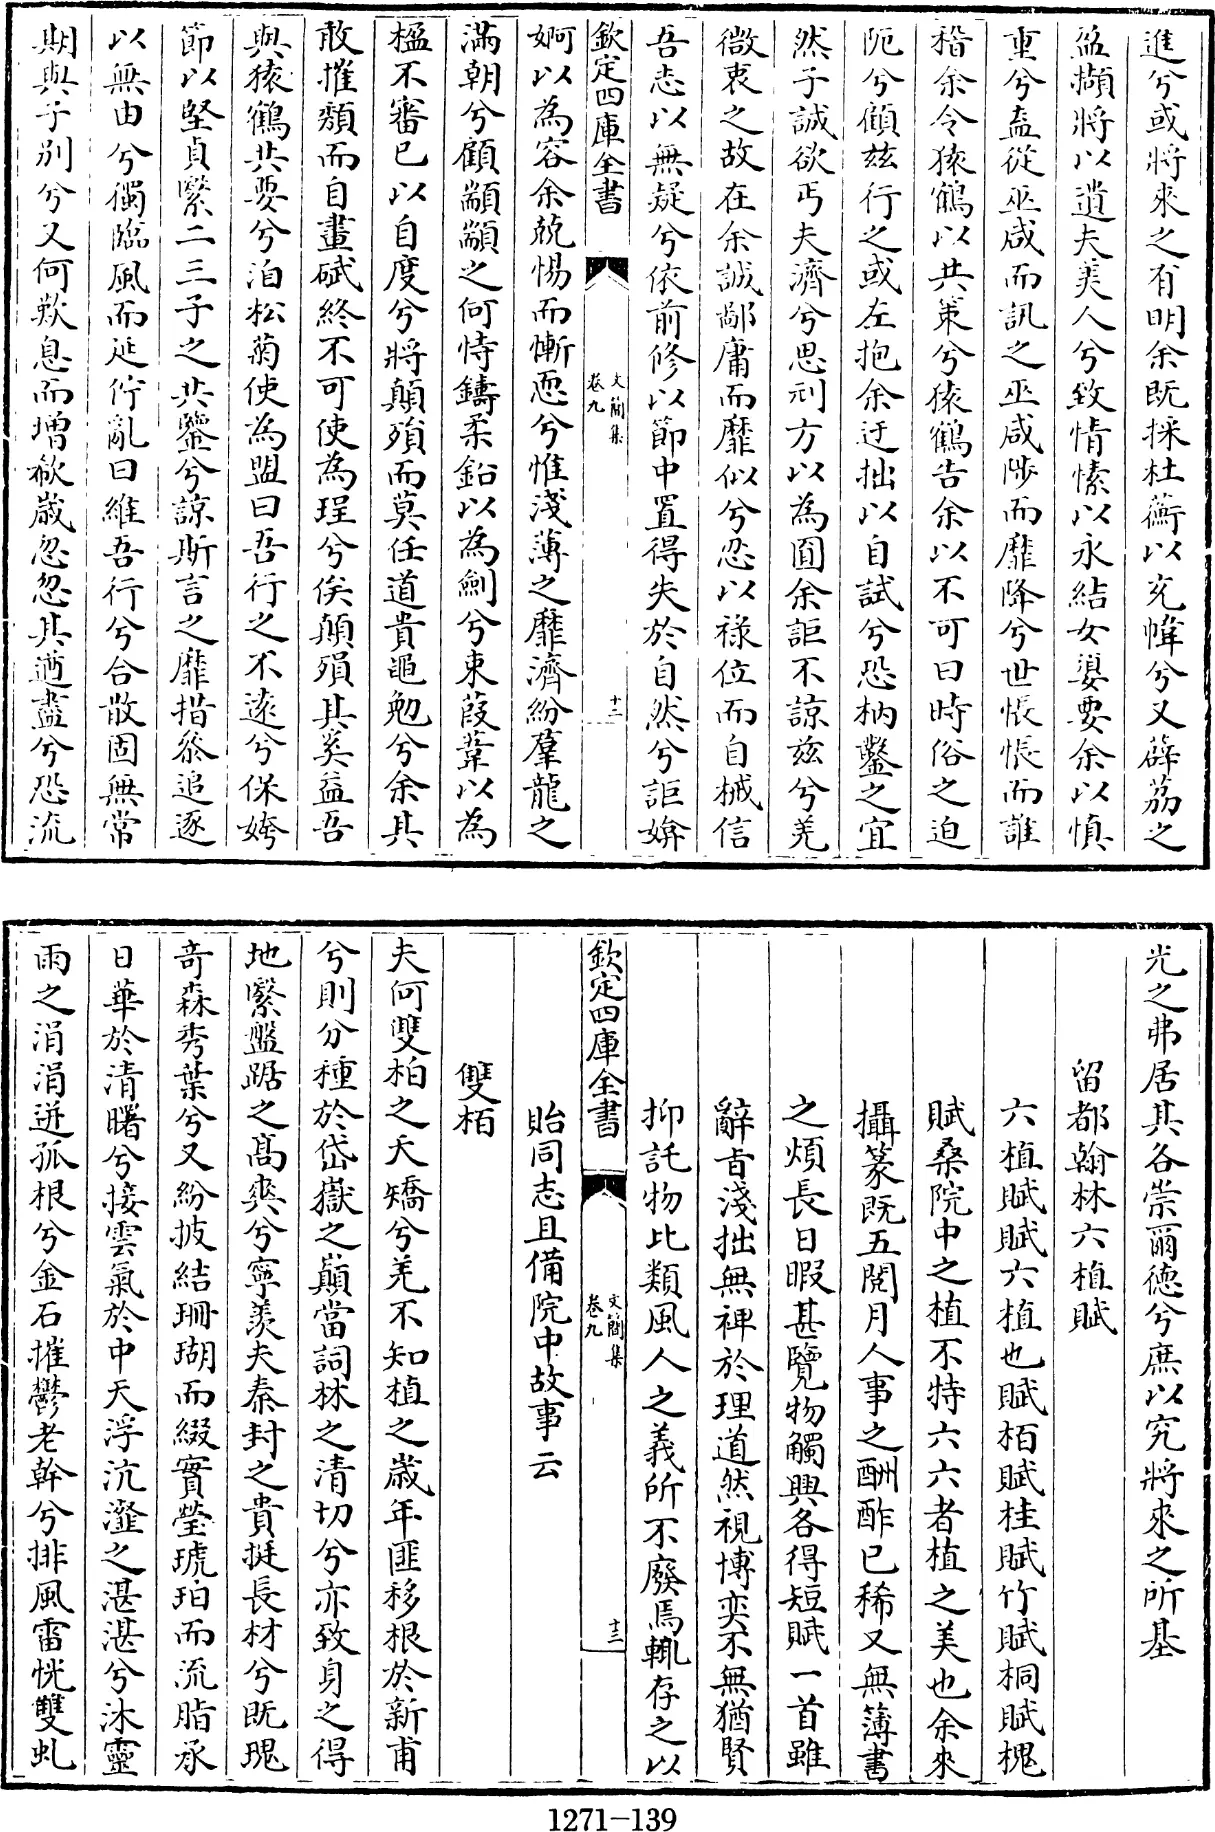 進兮或將來之有明余既採杜蘅以充幃兮又薜荔之
盈擷將以遺夫美人兮致情愫以永結女嬃要余以慎
重兮盍從巫咸而訊之巫咸陟而靡降兮世悵悵而誰
稽余令猿鶴以共策兮猿鶴告余以不可曰時俗之迫
阨兮顧兹行之或左抱余迂拙以自試兮恐枘鑿之宜
然子誠欲丐夫濟兮思刓方以為圓余詎不諒兹兮羌
微衷之故在余誠鄙庸而靡似兮忍以祿位而自械信
吾志以無疑兮依前修以節中置得失於自然兮詎媕
欽定四庫全書
文簡集
卷九
十二
婀以為容余兢惕而慚恧兮惟淺薄之靡濟紛羣龍之
滿朝兮顧顓顓之何恃鑄柔鉛以為劍兮束葭葦以為
楹不審已以自度兮將顛殞而莫任道貴黽勉兮余其
敢摧頽而自畫碔終不可使為珵兮俟顛殞其奚益吾
與猿鶴共要兮洎松菊使為盟曰吾行之不逺兮保姱
節以堅貞繄二三子之共鑒兮諒斯言之靡指𠫵追逐
以無由兮獨臨風而延佇亂曰維吾行兮合散固無常
期與子别兮又何歎息而增欷歲忽忽其遒盡兮恐流
光之弗居其各崇爾德兮庶以究將來之所基
留都翰林六植賦
六植賦賦六植也賦栢賦桂賦竹賦桐賦槐
賦桑院中之植不特六六者植之美也余來
攝篆既五閲月人事之酬酢已稀又無薄書
之煩長日暇甚覽物觸興各得短賦一首雖
辭㫖淺拙無裨於理道然視博奕不無猶賢
抑託物比類風人之義所不廢焉輒存之以
欽定四庫全書
文簡集
卷九
十三
貽同志且備院中故事云
雙栢
夫何雙柏之夭矯兮羌不知植之歲年匪移根於新甫
兮則分種於岱嶽之巔當詞林之清切兮亦致身之得
地繄盤踞之髙爽兮寧羡夫秦封之貴挺長材兮既瑰
奇森秀葉兮又紛披結珊瑚而綴實瑩琥珀而流脂承
日華於清曙兮接雲氣於中天浮沆瀣之湛湛兮沐靈
雨之涓涓迸孤根兮金石摧鬱老幹兮排風雷恍雙虬
1271-139